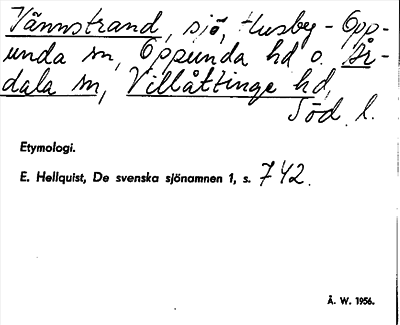 Vännstrand, sjö, Husby-Opp-
unda sn, Oppunda hd o. År-
dala sn, Villåttinge hd,
Söd. l.
Etymologi.
E. Hellquist, De svenska sjönamnen 1, s. 742.
Å. W. 1956.